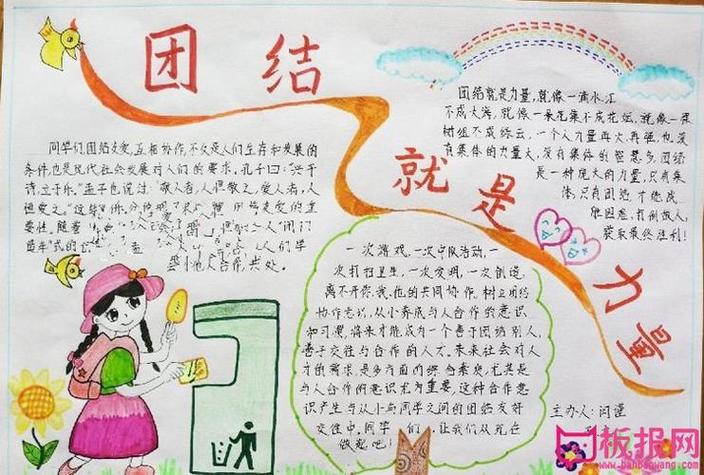 团结
就是
力量
同学们团结友爱,互相协作,不仅是人们生存和发展的
条件也是现代社会发展对人们的要求。孔子曰:"兴于
诗,立于乐。"孟子也说过:"敬人者,人恒敬之,爱人者,人
恒爱之。"这些
要性。随着
团结就是力量,就像一滴水汇
不成大海,就像一朵花集不成花坛,就像一棵
树组不成绿丛,一个人力量再大,再强,也没
有集体的力量大,没有集体的智慧多,团结
是一种庞大的力量,只有集
体,只有团结,才能战
胜困难,打倒敌人,
获取最终胜利!
一次游戏,一次中队活动,一
次打扫卫生,一次发明,一次创造,
离不开你、我、他的共同协作,树立团结
协作意识,从小养成与人合作的意识
和习惯,将来才能成为一个善于团结别人,
善于交往与合作的人才。未来社会对人
才的需求是多方面的综合素质,尤其是
与人合作的意识尤为重要,这种合作意
识产生与从小与同学之间的团结友好
交往中,同学们,让我们从现在
做起吧!
主办人:闫谨
板报网
www.banbaowang.com